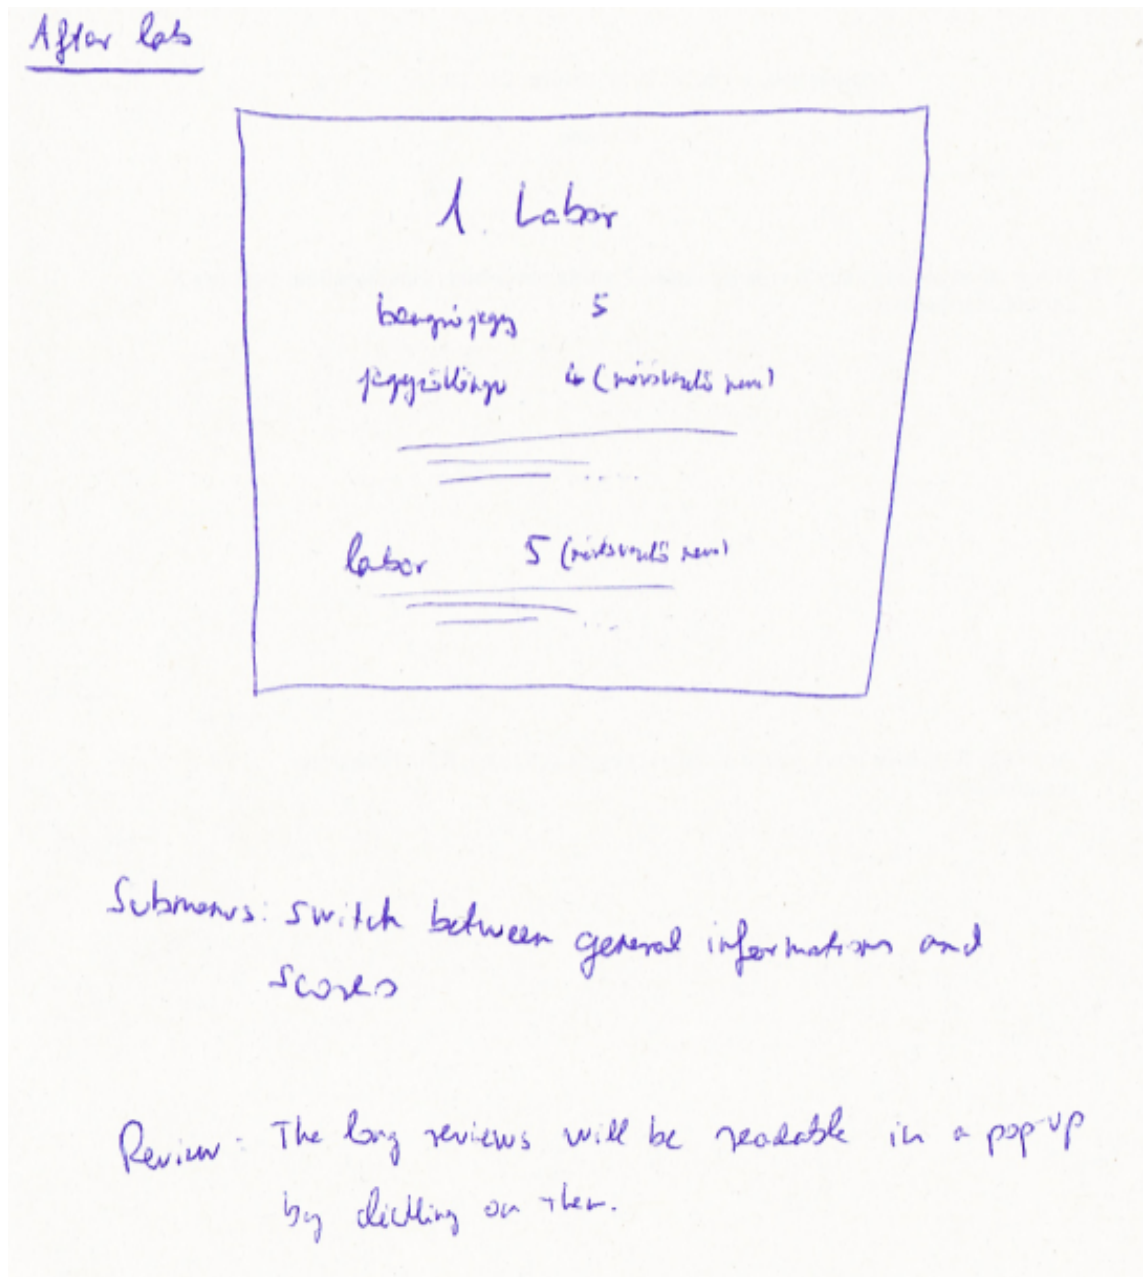 After lab
1. Labor
beugrójegy 5
jegyzőkönyv 4 (név)
labor 5 (név)
Submenus: switch between general informations and
scores
Review: The long reviews will be readable in a pop-up
by clicking on them.